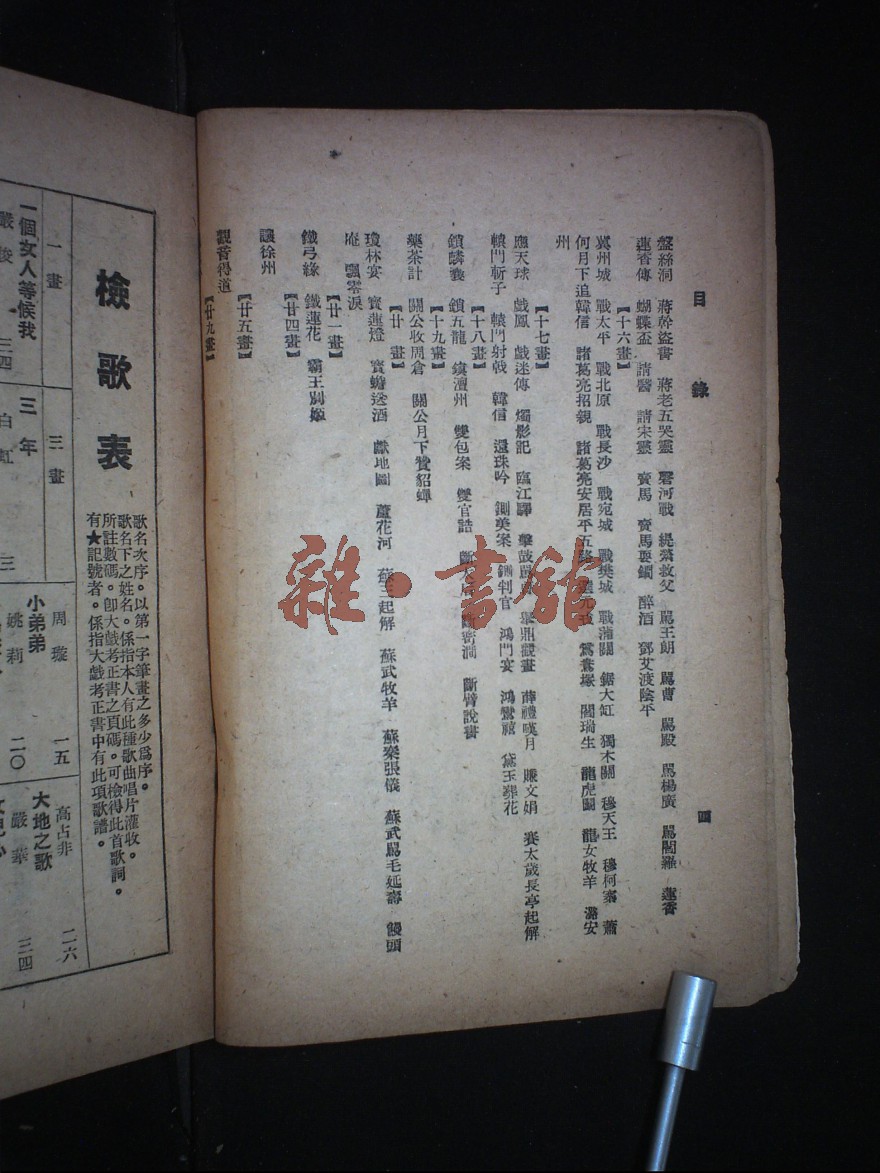 目 錄 四
盤絲洞 蔣幹盜書 蔣老五哭靈 磐河戰 緹縈救父 罵王朗 罵曹 罵殿 罵楊廣 罵閻羅 蓮香
蓮香傳 蝴蝶盃 請醫 請宋靈 賣馬 賣馬耍鐧 醉酒 鄧艾渡陰平
【十六畫】
冀州城 戰太平 戰北原 戰長沙 戰宛城 戰樊城 戰蒲關 鋸大缸 獨木關 穆天王 穆柯寨 蕭
何月下追韓信 諸葛亮招親 諸葛亮安居平五路 鴛鴦塚 閻瑞生 龍虎鬭 龍女牧羊 潞安
州
【十七畫】
應天球 戲鳳 戲迷傳 燭影記 臨江驛 擊鼓罵曹 舉鼎觀畫 薛禮嘆月 賺文娟 賽太歲長亭起解
轅門斬子 轅門射戟 韓信 還珠吟 鍘美案 鍘判官 鴻門宴 鴻鸞禧 黛玉葬花
【十八畫】
鎖麟囊 鎖五龍 鎮澶州 雙包案 雙官誥 斷密澗 斷臂說書
【十九畫】
藥茶計 關公收周倉 關公月下贊貂蟬
【廿 畫】
瓊林宴 寶蓮燈 寶蟾送酒 獻地圖 蘆花河 蘇三起解 蘇武牧羊 蘇秦張儀 蘇武罵毛延壽 饅頭
庵 飄零淚
【廿一畫】
鐵弓緣 鐵蓮花 霸王別姬
【廿四畫】
讓徐州
【廿五畫】
觀音得道
【廿九畫】
檢歌表
歌名次序。以第一字筆畫之多少為序。
歌名下之姓名。係指本人有此種歌曲唱片灌收。
所註數碼。卽大戲考正書之頁碼。可檢得此首歌詞。
有★記號者。係指大戲考正書中有此項歌譜。
一畫
一個女人等候我
嚴俊 三四
三畫
三年
白虹 三
周璇 一五
小弟弟
姚莉 二〇
高占非 二六
大地之歌
嚴華 三四
雜·書館